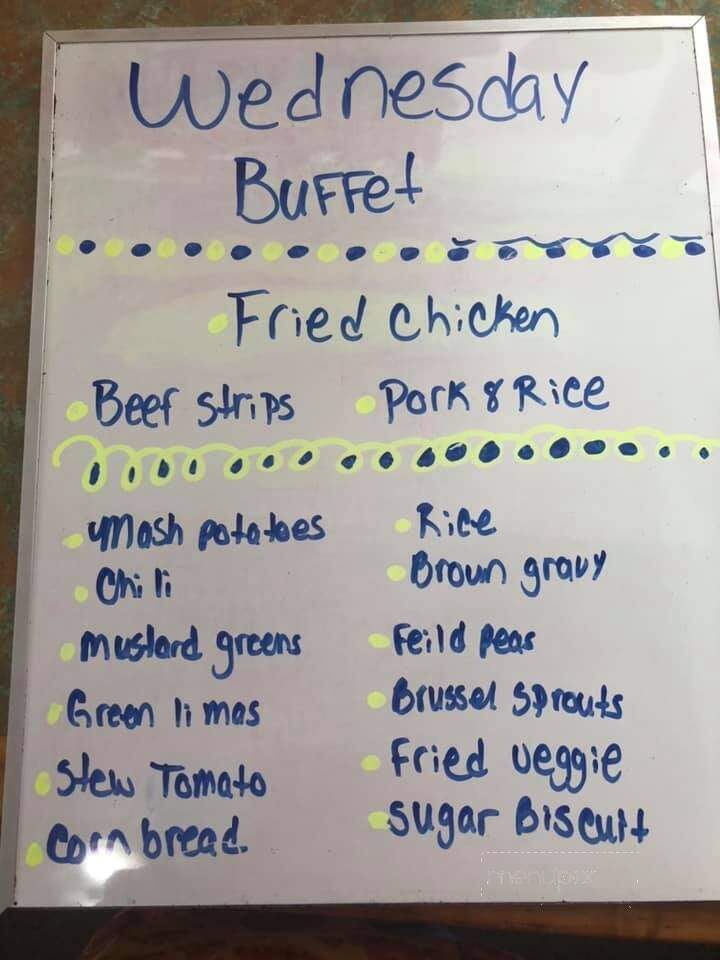 Wednesday
Buffet
Fried chicken
Beef strips
Pork & Rice
Mash potatoes
Rice
Chili
Broun gravy
mustard greens
Feild peas
Green limas
Brussel sprouts
Stew Tomato
Fried veggie
corn bread.
sugar Biscuit
menupix